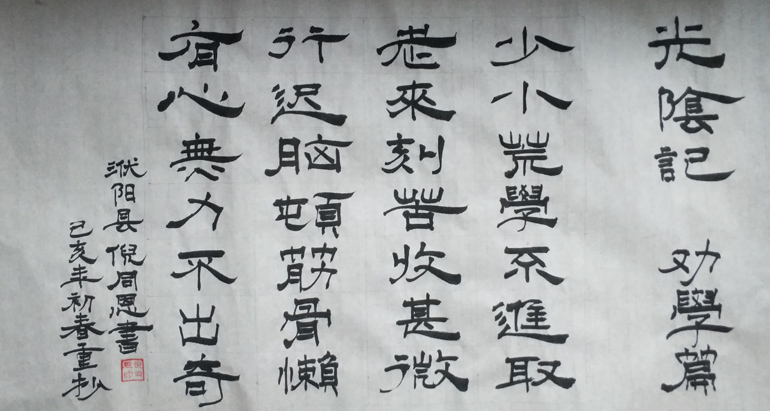 光陰記 劝學篇
少小荒學不進取
老來刻苦收甚微
行迟脑頓筋骨懶
有心無力不出奇
濮阳县倪周恩書
己亥年初春重抄